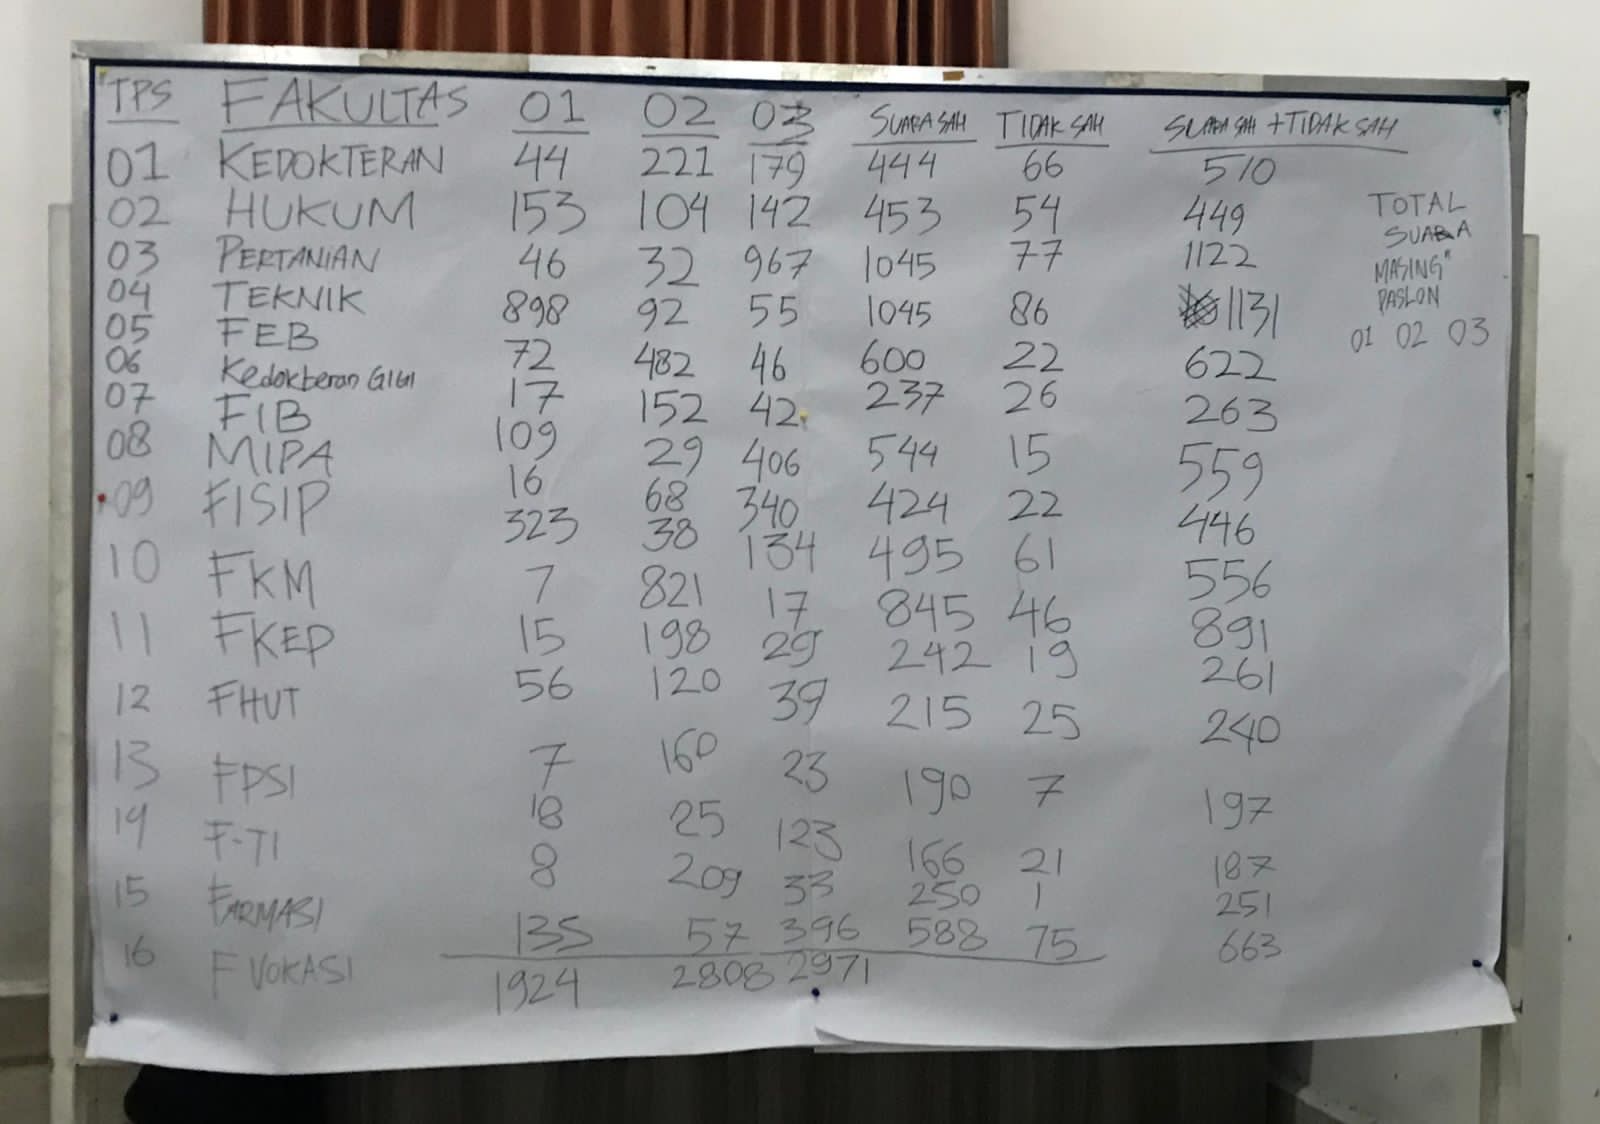 TPS FAKULTAS 01 02 03 SUARA SAH TIDAK SAH SUARA SAH + TIDAK SAH
01 KEDOKTERAN 44 221 179 444 66 510
02 HUKUM 153 104 142 453 54 449
03 PERTANIAN 46 32 967 1045 77 1122
04 TEKNIK 898 92 55 1045 86 1131
05 FEB 72 482 46 600 22 622
06 Kedokteran GIGI 17 152 42 237 26 263
07 FIB 109 29 406 544 15 559
08 MIPA 16 68 340 424 22 446
09 FISIP 323 38 134 495 61 556
10 FKM 7 821 17 845 46 891
11 FKEP 15 198 29 242 19 261
12 FHUT 56 120 39 215 25 240
13 FPSI 7 160 23 190 7 197
14 F-TI 18 25 123 166 21 187
15 FARMASI 8 209 33 250 1 251
16 F VOKASI 135 57 396 588 75 663
1924 2808 2971
TOTAL
SUARA
MASING"
PASLON
01 02 03